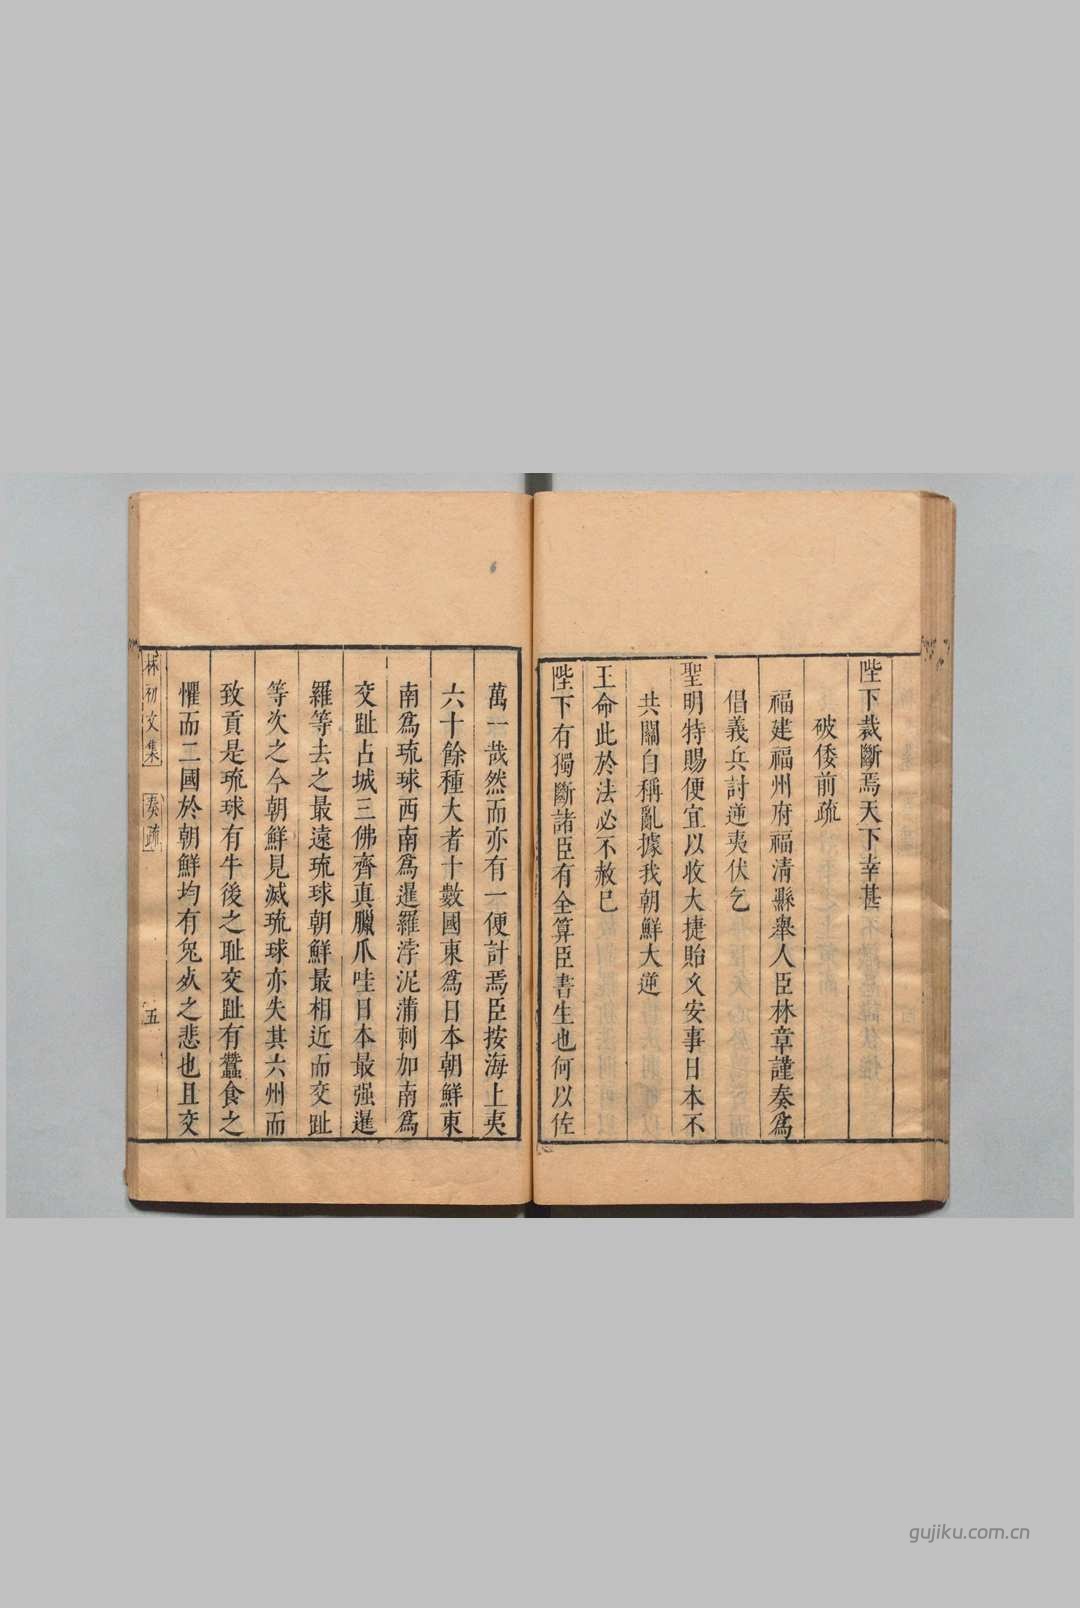 陛下裁斷焉天下幸甚
破倭前疏
福建福州府福清縣舉人臣林章謹奏爲
倡義兵討逆夷伏乞
聖明特賜便宜以收大捷貽久安事日本不
共關自稱亂據我朝鮮大逆
王命此於法必不赦巳
陛下有獨斷諸臣有全算臣書生也何以佐
萬一哉然而亦有一便計焉臣按海上夷
六十餘種大者十數國東爲日本朝鮮東
南爲琉球西南爲暹羅浡泥蒲剌加南爲
交趾占城三佛齊真臘爪哇日本最强暹
羅等去之最遠琉球朝鮮最相近而交趾
等次之今朝鮮見滅琉球亦失其六州而
致貢是琉球有牛後之耻交趾有蠶食之
懼而二國於朝鮮均有兔狐之悲也且交
林初文集 奏疏 五
gujiku.com.cn